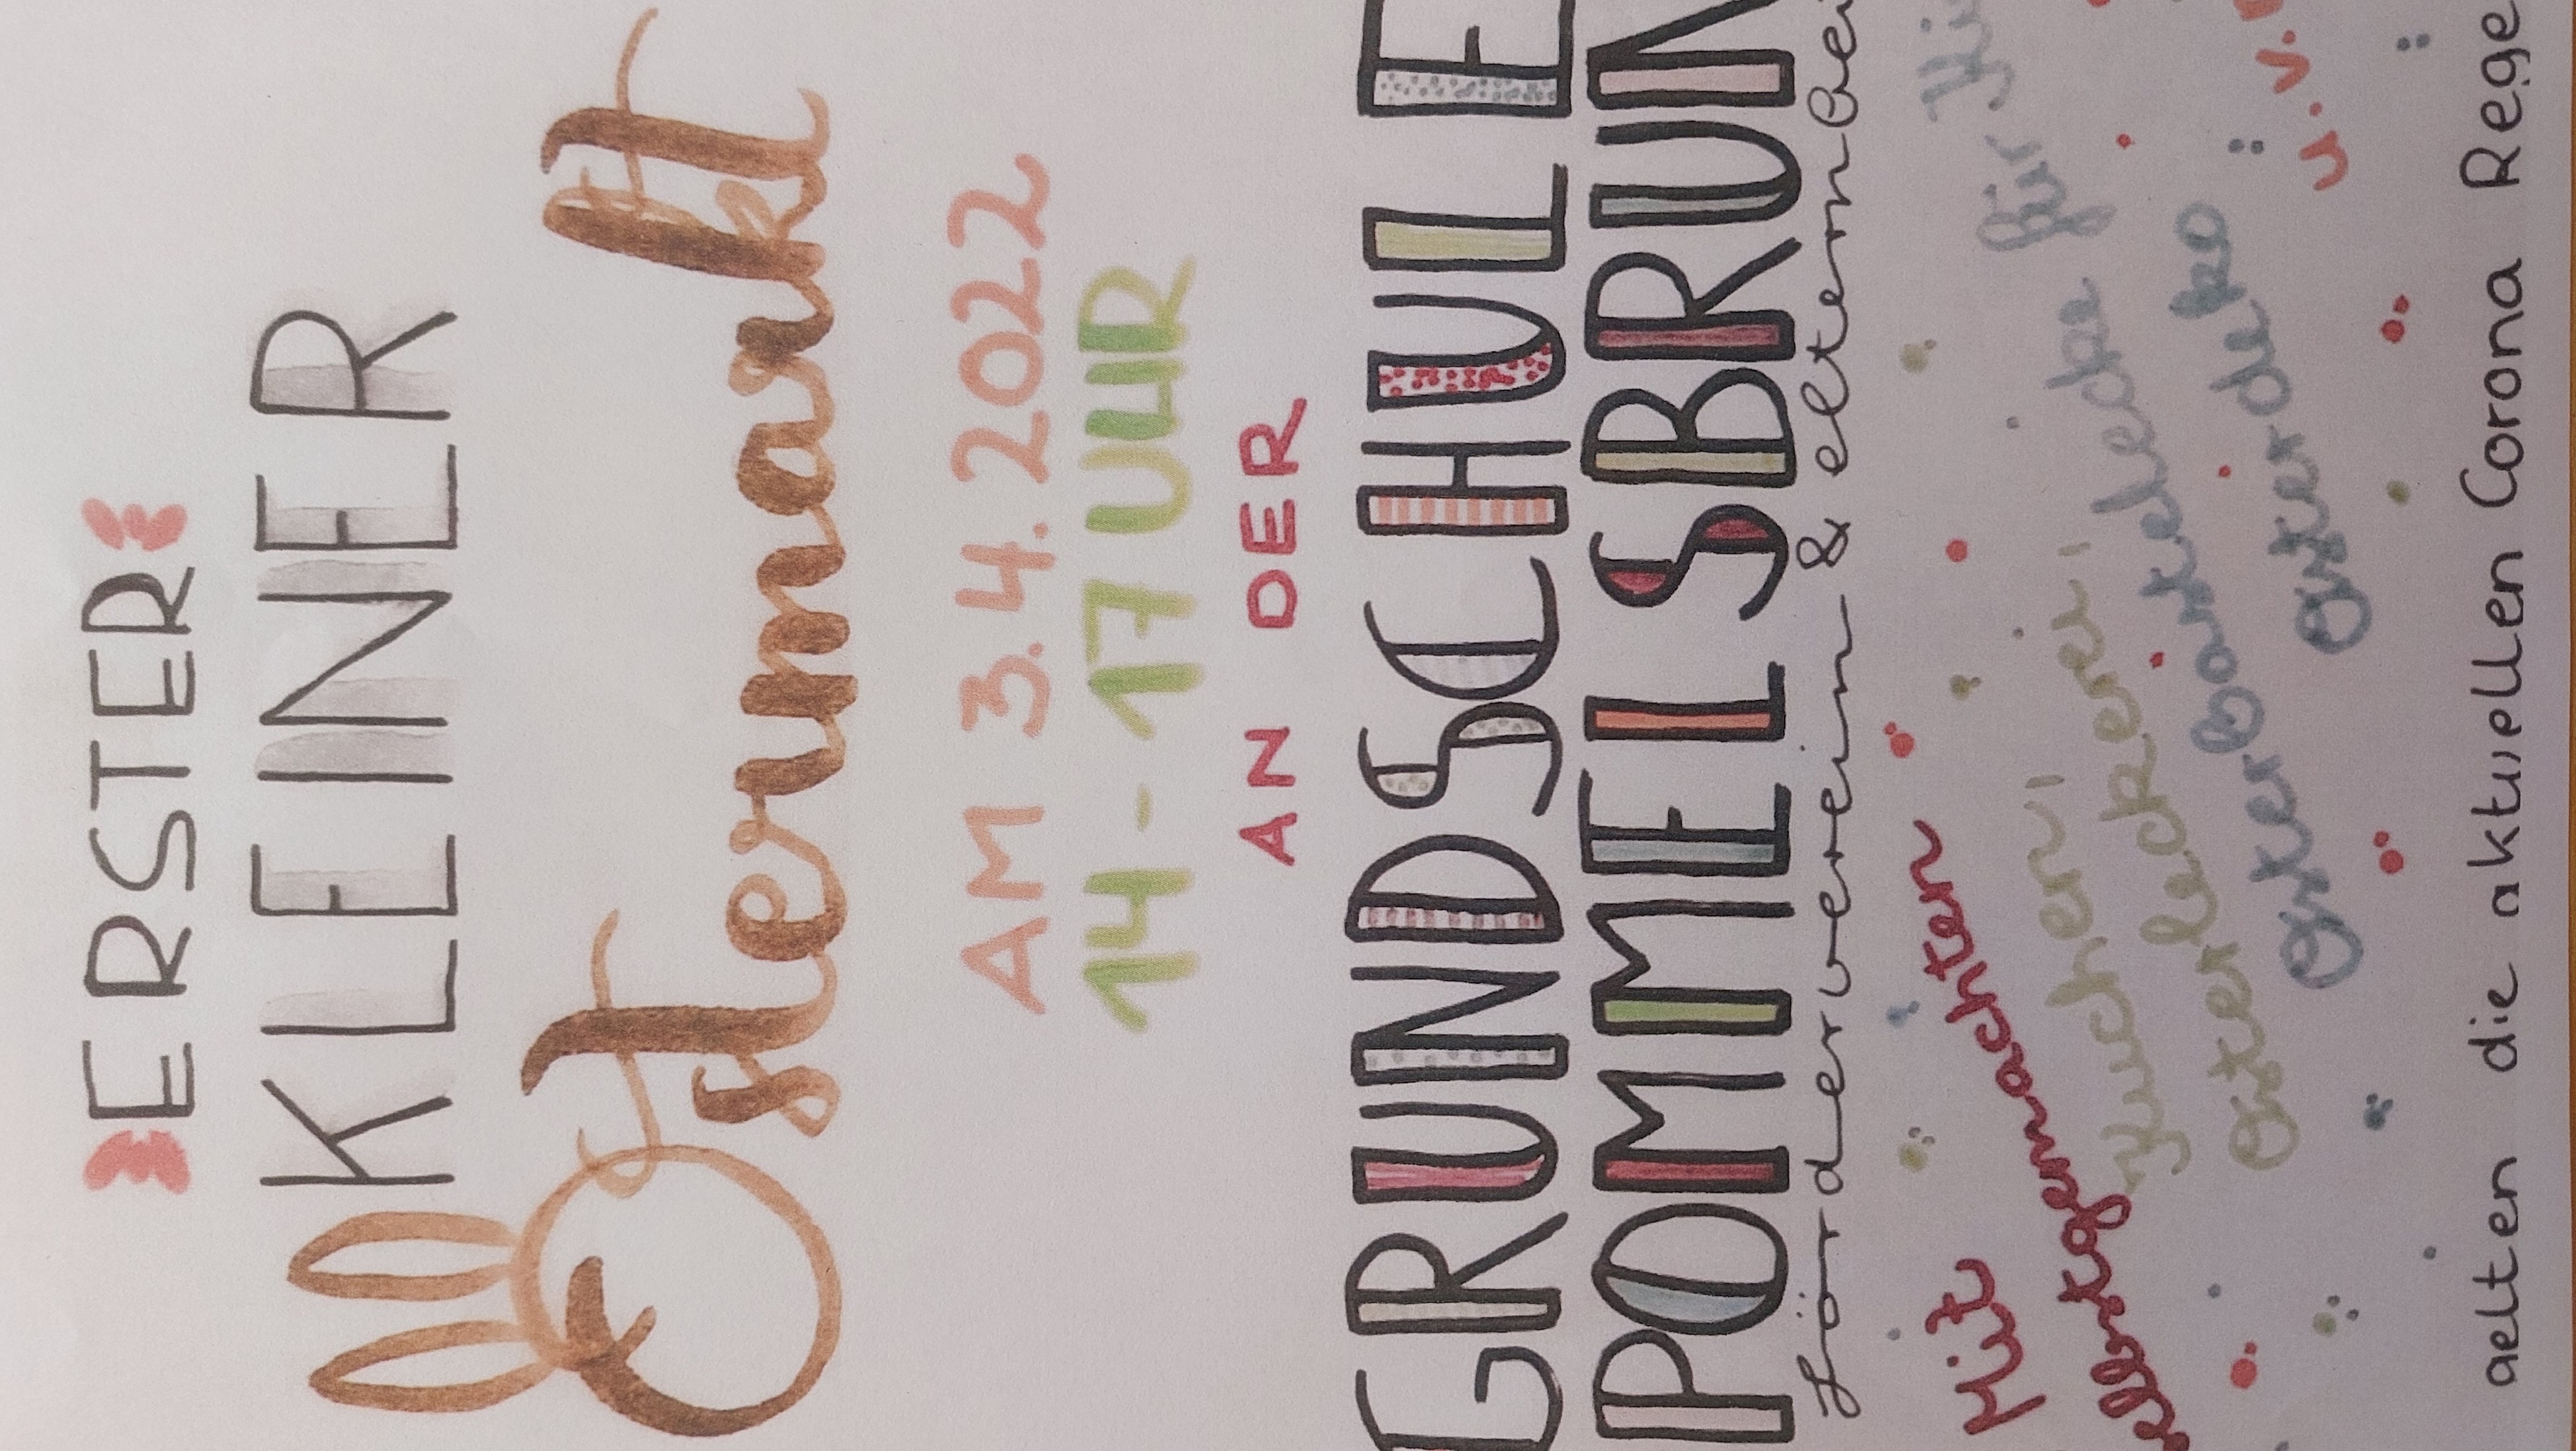 ERSTER
KLEINER
Ostermarkt
AM 3.4.2022
14 - 17 UHR
AN DER
GRUNDSCHULE
POMMELSBRUN
förderverein & elternbei
Mit
elbstgemachten
Kuchen,
Osterleckerei,
Osterbastelecke für Ki
Osterdeko
u.v.
aelten die aktuellen Corona Rege